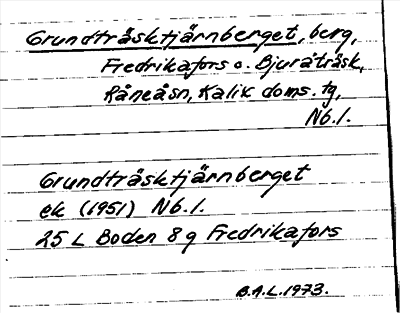 Grundträsktjärnberget, berg,
Fredrikafors o. Bjuråträsk,
Råneåsn, Kalix doms. tg,
Nb. l.
Grundträsktjärnberget
ek (1951) Nb. l.
25 L Boden 8 g Fredrikafors
B.A.L. 1973.